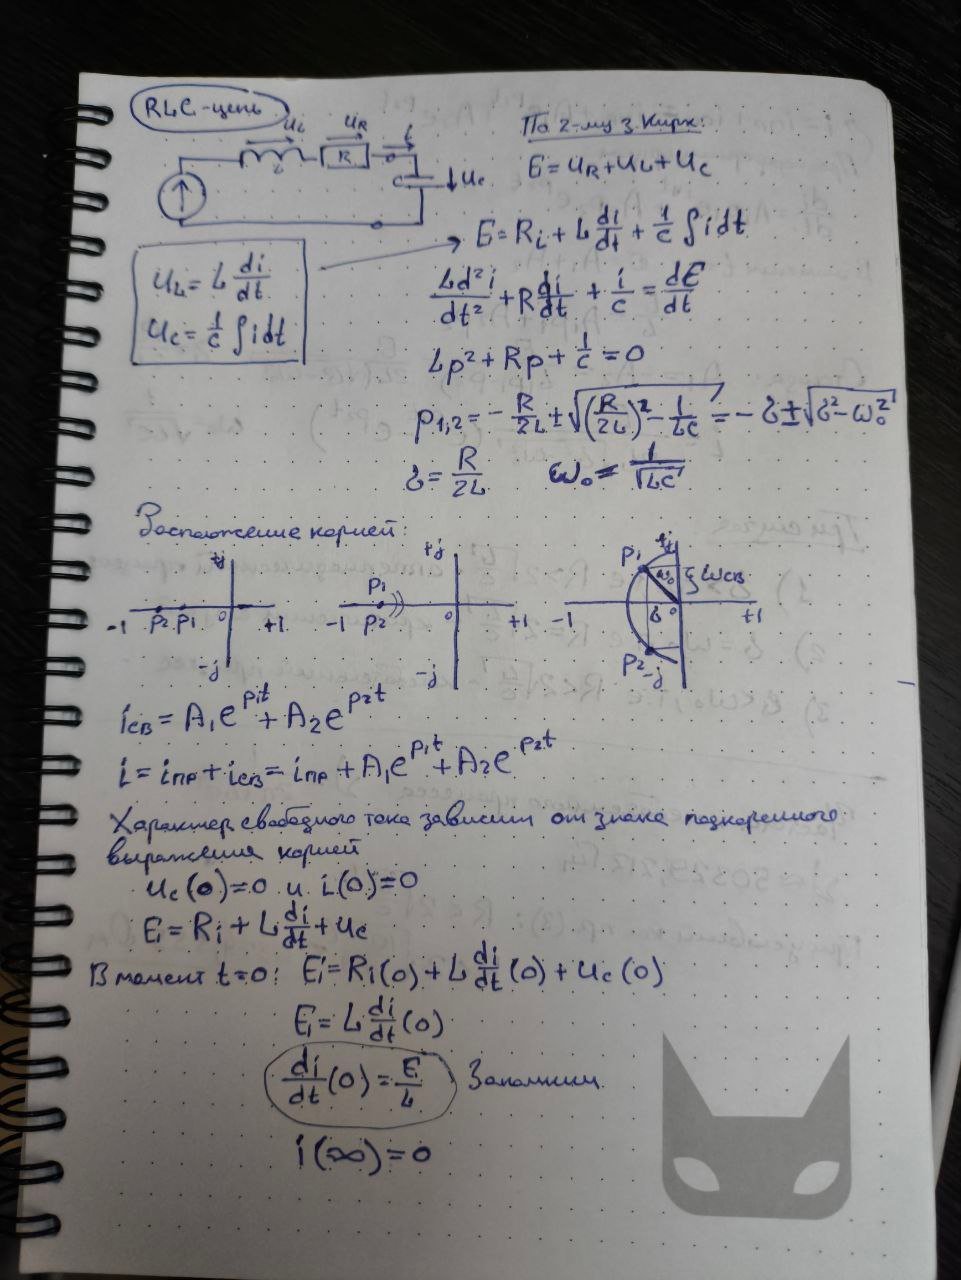 RLC-цепь
U_L U_R i
L R C U_C
По 2-му з. Кирх:
E = U_R + U_L + U_C
U_L = L di/dt
U_C = 1/C ∫ i dt
E = Ri + L di/dt + 1/C ∫ i dt
L d²i/dt² + R di/dt + i/C = dE/dt
Lp² + Rp + 1/C = 0
p_1,2 = - R/2L ± √((R/2L)² - 1/LC) = - δ ± √(δ² - ω_0²)
δ = R/2L ω_0 = 1/√LC
Расположение корней:
+j +j +j
-1 p_2 p_1 0 +1 -1 p_1 p_2 0 +1 -1 p_1 ω_0 ω_св δ 0 +1 p_2
-j -j -j
i_св = A_1 e^(p_1 t) + A_2 e^(p_2 t)
i = i_пр + i_св = i_пр + A_1 e^(p_1 t) + A_2 e^(p_2 t)
Характер свободного тока зависит от знака подкоренного
выражения корней
U_C(0) = 0 и i(0) = 0
E = Ri + L di/dt + U_C
В момент t=0: E = Ri(0) + L di/dt (0) + U_C(0)
E = L di/dt (0)
di/dt (0) = E/L Запомним
i(∞) = 0